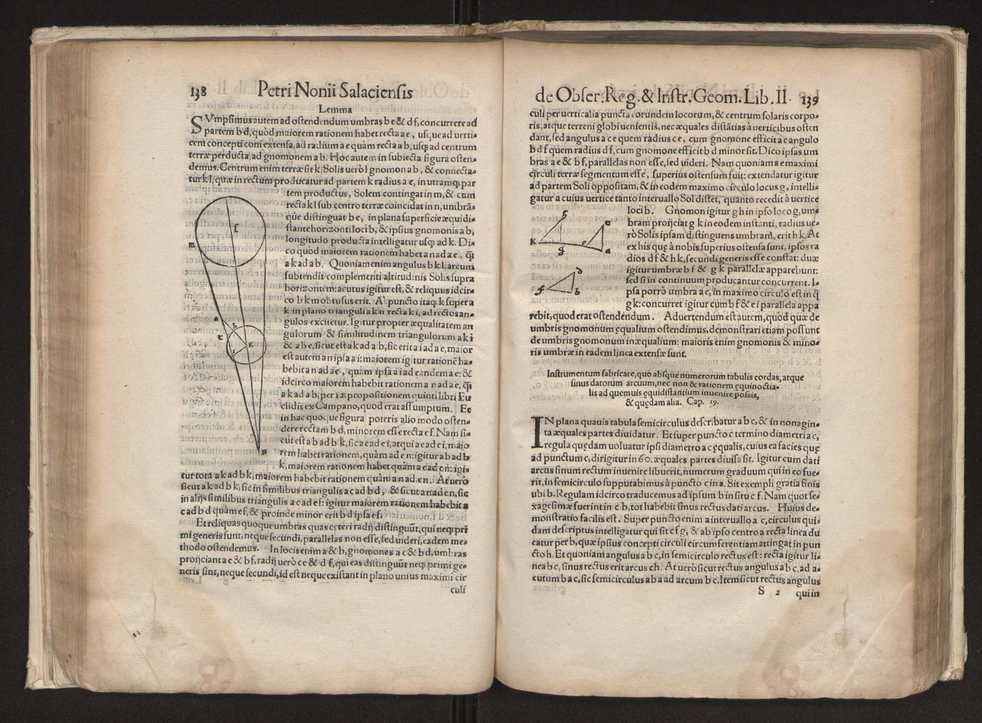 138 Petri Nonii Salaciensis
Lemma
SVmpsimus autem ad ostendendum umbras b e & d f, concurrere ad
partem b d, quòd maiorem rationem habet recta a e, usque ad verti
cem concepti coni extensa, ad radium a e quàm recta a b, usque ad centrum
terræ perducta, ad gnomonem a b. Hoc autem in subiecta figura osten-
demus. Centrum enim terræ sit k. Solis vero l gnomon a b, & connecta-
tur k l, quæ in rectum producatur ad partem k radius a e, in utramque par
tem productus, Solem contingat in m, & cum
recta k l sub centro terræ coincidat in n, umbrã
que distinguat b e, in plana superficie æquidi-
stante horizonti loci b, & ipsius gnomonis a b,
longitudo producta intelligatur usque ad k. Di
co quòd maiorem rationem habet a n ad a e, quã
a k ad a b. Quoniam enim angulus b k l, arcum
subtendit complementi altitudinis Solis supra
horizontem: acutus igitur est, & reliquus idcir
co b k n obtusus erit. A puncto itaque k super a
k in plano trianguli a k n recta k i, ad rectos an-
gulos excitetur. Igitur propter æqualitatem an
gulorum & similitudinem triangulorum a k i
& a b e, sicut est a k ad a b, sic erit a i ad a e, maior
est autem a n ipsa a i: maiorem igitur rationẽ ha-
bebit a n ad a e, quàm ipsa a i ad eandem a e: &
idcirco maiorem habebit rationem a n ad a e, quã
a k ad a b, per 12 propositionem quinti libri Eu
clidis ex Campano, quod erat assumptum. Et
in hac quoque figura poteris alio modo osten-
dere rectam b d, minorem esse recta e f. Nam si-
cut est a b ad b k, sic a e ad e i, atqui a e ad e i, maio
rem habet rationem, quàm ad e n: igitur a b ad b
k, maiorem rationem habet quàm a e ad e n: igi-
tur tota a k ad b k, maiorem habebit rationem quàm a n ad e n. At vero
sicut a k ad b k, sic in similibus triangulis a c ad b d, & sicut a n ad e n, sic
in alijs similibus triangulis a c ad e f: igitur maiorem rationem habebit a
c ad b d quàm e f, & proinde minor erit b d ipsa e f.
Et reliquas quoque umbras quas cæteri radij distinguũt, qui neque pri
mi generis sunt: neque secundi, parallelas non esse, sed uideri, eadem me-
thodo ostendemus. In locis enim a & b, gnomones a c & b d, umbras
projiciant a e & b f, radij uerò c e & d f, qui eas distinguũt neque primi ge-
neris sint, neque secundi, id est neque existant in plano unius maximi cir
culi
de Obser. Reg. & Instr. Geom. Lib. II. 139
culi per uerticalia puncta eorundem locorum, & centrum solaris corpo-
ris, atque terreni globi uenientis, nec æquales distãtias à verticibus osten
dant, sed angulus a c e quem radius c e, cum gnomone efficit a c angulo
b d f quem radius d f, cum gnomone efficit b d minor sit. Dico ipsas um
bras a e & b f, parallelas non esse, sed uideri. Nam quoniam a e maximi
circuli terræ segmentum esse, superius ostensum fuit: extendatur igitur
ad partem Soli oppositam, & in eodem maximo circulo locus g, intelli-
gatur a cuius vertice tanto interuallo Sol distet, quanto recedit à vertice
loci b. Gnomon igitur g h in ipso loco g, um-
bram projiciat g k in eodem instanti, radius ue-
rò Solis ipsam distinguens umbram, erit h k. At
ex his quæ à nobis superius ostensa sunt, ipsos ra
dios d f & h k, secundi generis esse constat: duæ
igitur umbræ b f & g k parallelæ apparebunt:
sed si in continuum producantur concurrent. I-
psa porrò umbra a e, in maximo circulo est in quo
g k: concurret igitur cum b f & ei parallela appa
rebit, quod erat ostendendum. Aduertendum est autem, quòd quæ de
umbris gnomonum æqualium ostendimus, demonstrari etiam possunt
de umbris gnomonum inæqualium: maioris enim gnomonis & mino-
ris umbræ in eadem linea extensæ sunt.
Instrumentum fabricare, quo absque numerorum tabulis cordas, atque
sinus datorum arcuum, nec non & rationem equinoctia-
lis ad quemuis equidistantium inuenire possis,
& quędam alia. Cap. 19.
IN plana quauis tabula semicirculus describatur a b c, & in nonagin-
ta æquales partes diuidatur. Et super puncto c termino diametri a c,
regula quędam uoluatur ipsi diametro a c ęqualis, cuius ea facies quę
ad punctum c, dirigitur in 60. æquales partes diuisa sit. Igitur cum dati
arcus sinum rectum inuenire libuerit, numerum graduum qui in eo fue-
rit, in semicirculo supputabimus à puncto c in a. Sit exempli gratia finis
ubi b. Regulam idcirco traducemus ad ipsum b in situ c f. Nam quot se-
xagesimæ fuerint in c b, tot habebit sinus rectus dati arcus. Huius de-
monstratio facilis est. Super puncto enim a interuallo a c, circulus qui-
dam descriptus intelligatur qui sit c f g, & ab ipso centro a recta linea du
catur per b, quæ ipsius concepti circuli circumferentiam attingat in pun
cto h. Et quoniam angulus a b c, in semicirculo rectus est: recta igitur li-
nea b c, sinus rectus erit arcus c h. At uerò sicut rectus angulus a b c, ad a-
cutum b a c, sic semicirculus a b a ad arcum b c. Item sicut rectus angulus
S 2 qui in